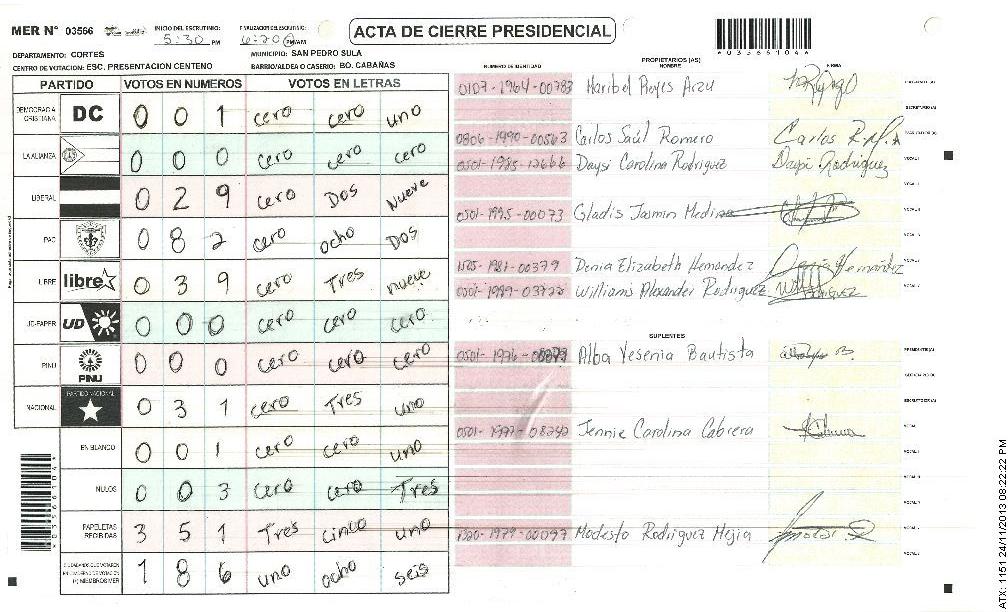 MER N° 03566
INICIO DEL ESCRUTINIO: 5:30 PM
FINALIZACION DEL ESCRUTINIO: 6:20 PM/AM
ACTA DE CIERRE PRESIDENCIAL
DEPARTAMENTO: CORTES
MUNICIPIO: SAN PEDRO SULA
CENTRO DE VOTACION: ESC. PRESENTACION CENTENO
BARRIO/ALDEA O CASERIO: BO. CABAÑAS
PARTIDO VOTOS EN NUMEROS VOTOS EN LETRAS
DEMOCRACIA CRISTIANA DC 0 0 1 cero cero uno
LA ALIANZA 0 0 0 cero cero cero
LIBERAL 0 2 9 cero Dos Nueve
PAC 0 8 2 cero ocho Dos
LIBRE libre 0 3 9 cero Tres nueve
UD-FAPER UD 0 0 0 cero cero cero
PINU PINU 0 0 0 cero cero cero
NACIONAL PARTIDO NACIONAL 0 3 1 cero Tres uno
EN BLANCO 0 0 1 cero cero uno
NULOS 0 0 3 cero cero Tres
PAPELETAS RECIBIDAS 3 5 1 Tres cinco uno
1 8 6 uno ocho seis
PROPIETARIOS (AS)
NUMERO DE IDENTIDAD NOMBRE FIRMA
0107-1964-00783 Maribel Reyes Arzu
0806-1990-00563 Carlos Saúl Romero Carlos R.M.
0501-1985-12666 Daysi Carolina Rodriguez Daysi Rodriguez
0501-1995-00073 Gladis Jasmin Medina
1525-1981-00379 Denia Elizabeth Hernandez Denia Hernandez
0501-1989-03722 Williams Alexander Rodriguez
SUPLENTES
0501-1976- Alba Yesenia Bautista
0501-1997-08242 Jennie Carolina Cabrera
1320-1979-00097 Modesto Rodriguez Mejia
ATX: 1151 24/11/2013 08:22:22 PM